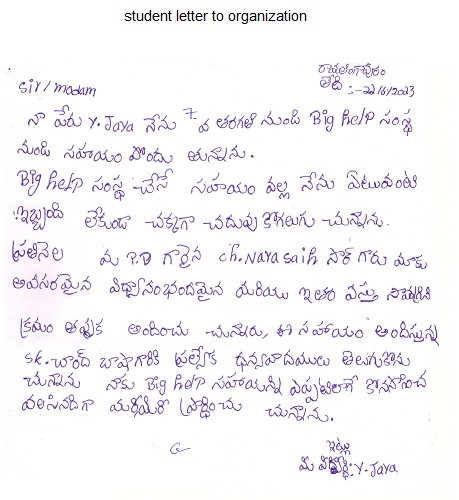 student letter to organization
తేది :- 22/6/2023
Sir/madam
నా పేరు Y. Jaya నేను 7 వ తరగతి నుండి Big help సంస్థ
నుండి సహాయం పొందు తున్నాను.
Big help సంస్థ చేసే సహాయం వల్ల నేను ఎటువంటి
ఇబ్బంది లేకుండా చక్కగా చదువు కొగలుగు చున్నాను.
ప్రతినెల మ P.D గారైన ch. Naya saih సార్ గారు మాకు
అవసరమైన మరియు ఇతర వస్తు
క్రమం తప్పక అందించు చున్నారు, ఈ సహాయం అందిస్తున్న
sk. చాంద్ బాషా గారికి ప్రత్యేక ధన్యవాదములు తెలుగుకొను
చున్నాను నాకు Big help సహాయన్ని ఎప్పటిలాగే కొనసాగించ
వలసినదిగా ప్రార్థించు చున్నాను.
ఇట్లు
మీ Y. Jaya